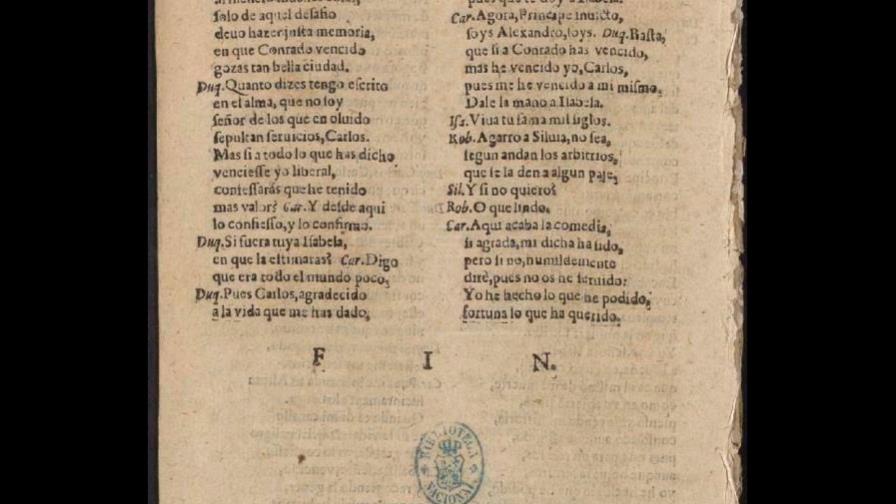 solo de aquel desafio
deuo hazer justa memoria,
en que Conrado vencido
gozas tan bella ciudad.
Duq. Quanto dizes tengo escrito
en el alma, que no soy
señor de los que en oluido
sepultan seruicios, Carlos.
Mas si a todo lo que has dicho
venciesse yo liberal,
confessarás que he tenido
mas valor? Car. Y desde aqui
lo confiesso, y lo confirmo.
Duq. Si fuera tuya Isabela,
en que la estimaras? Car. Digo
que era todo el mundo poco,
Duq. Pues Carlos, agradecido
a la vida que me has dado,
Car. Agora, Principe inuicto,
soys Alexandro, soys. Duq. Basta,
que si a Conrado has vencido,
mas he vencido yo, Carlos,
pues me he vencido a mi mismo,
Dale la mano a Isabela.
Isa. Viua tu fama mil siglos.
Rob. Agarro a Siluia, no sea,
segun andan los arbitrios,
que se la den a algun paje,
Sil. Y si no quiero?
Rob. O que lindo.
Car. Aqui acaba la comedia,
si agrada, mi dicha ha sido,
pero si no, humildemente
diré, pues no os he seruido:
Yo he hecho lo que he podido,
fortuna lo que ha querido.
F I N.
BIBLIOTECA NACIONAL